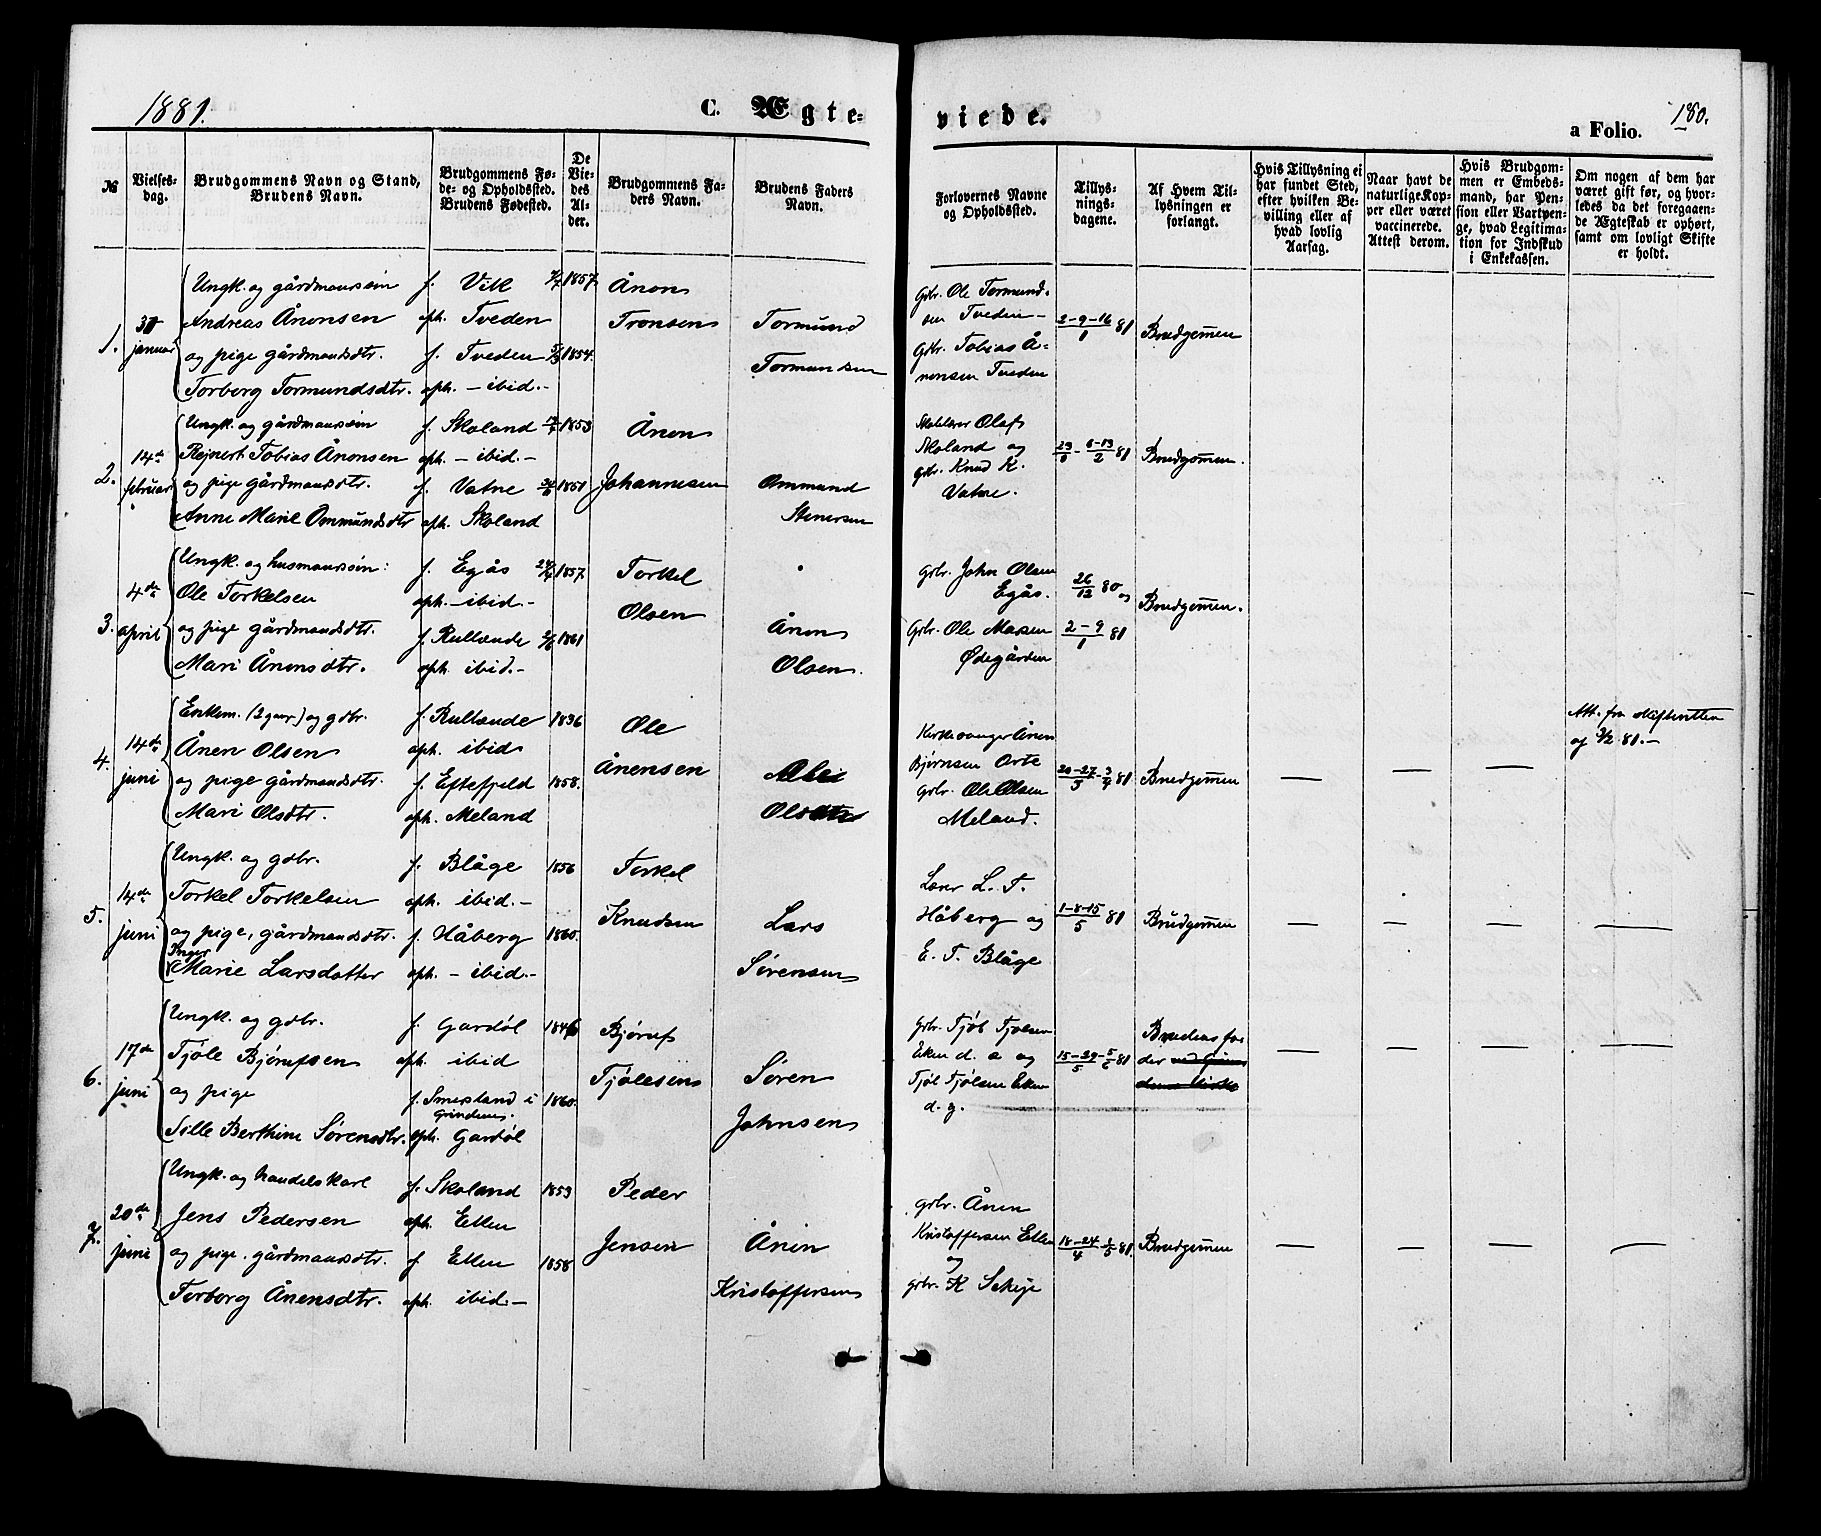 1881.
C. Ægte-
viede.
180.
a Folio.
№
Vielses-
dag.
Brudgommens Navn og Stand,
Brudens Navn.
Brudgommens Fø-
de- og Opholdssted.
Brudens Fødested.
De
Vie-
des
Al-
der.
Brudgommens Fa-
ders Navn.
Brudens Faders
Navn.
Forlovernes Navne
og Opholdssted.
Tillys-
nings-
dagene.
Af Hvem Til-
lysningen er
forlangt.
Hvis Tillysning ei
har fundet Sted,
efter hvilken Be-
villing eller af
hvad lovlig
Aarsag.
Naar havt de
naturlige Kop-
per eller været
vaccinerede.
Attest derom.
Hvis Brudgom-
men er Embeds-
mand, har Pen-
sion eller Vartpen-
ge, hvad Legitima-
tion for Indskud
i Enkekassen.
Om nogen af dem har
været gift før, og hvor-
ledes da det foregaaen-
de Ægteskab er ophørt,
samt om lovligt Skifte
er holdt.
1.
januar
Ungk. og gårdmanssøn
Andreas Ånonsen
og pige gårdmandsdtr.
Torborg Tormundsdtr.
f. Vik 1857.
oph. Tveden
f. Tveden 1854.
oph. - ibid.-
Ånon
Tronsen
Tormund
Tormundsen
Gbr. Ole Tormund-
sen Tveden -
Gbr. Tobias Å-
nonsen Tveden
2-9-16/1 81
Brudgommen
2.
14de
februar
Ungk. og gårdmanssøn
Rejnert Tobias Ånonsen
og pige gårdmansdtr.
Anne Marie Ommundsdtr
f. Skoland 1853
oph. - ibid.-
f. Vatne 1851
oph. Skoland
Ånon
Johannesen
Ommund
Stenersen
Olaf
Skoland og
gbr. Knud K.
Vatne.
23/1 - 6-13/2 81
Brudgommen.
3.
4de
april
Ungk. og husmanssøn:
Ole Torkelsen
og pige gårdmandsdtr.
Mari Ånensdtr.
f. Egås 1857.
oph. - ibid.-
f. Rullænde 1861
oph. ibid.-
Torkel
Olsen
Ånen
Olsen.
Gbr. John Olsen
Egås.
Gbr. Ole
Ødegården
26/12 80 og
2-9/1 81
Brudgommen.
4.
14de
juni
Enkem. (2 gang) og gdbr.
Ånen Olsen
og pige gårdmandsdtr.
Mari Olsdtr.
f. Rullænde 1836
oph. ibid
f. Eftefjeld 1858.
oph. Meland
Ole
Ånensen
Ole
Kirkesanger Ånen
Bjørnsen Orte
gbr. Ole Olsen
Meland.
81
Brudgommen
— — —
Att. fra skifteretten
af 81.-
5.
14de
juni
Ungk. og gdbr.
Torkel Torkelsen
og pige, gårdmandsdtr.
Inger
Marie Larsdatter
f. Blåge 1856
oph. ibid.-
f. Håberg 1860.
oph. - ibid.-
Torkel
Knudsen
Lars
Sørensen
L. T.
Håberg og
E. T. Blåge
1-8-15/5 81
Brudgommen
— — — —
6.
17de
juni
Ungk. og gdbr.
Tjøle Bjørufsen
og pige
Sille Berthine Sørensdtr.
f. Gardøl
oph. ibid
f. Smersland i 1860.
oph. Gardøl
Bjøruf
Tjølesen
Søren
Johnsen
Gbr. Tjøl Tjølsen
Eken d. æ og
Tjøl Tjølsen Eken
d. y.
15-29/5 - 5/6 81
Brudens fa-
der
— — — —
7.
20de
juni
Ungk. og handelskarl
Jens Pedersen
og pige. gårdmansdtr.
Torborg Ånensdtr.
f. Skoland 1853
oph. Eiken
f. Eiken 1858
oph. ibid.-
Peder
Jensen
Ånen
Kristoffersen
gbr. Ånen
Kristoffersen Eiken
og
gbr. K Skeje
18-24/4 - 1/5 81.
Brudgommen
— — — —